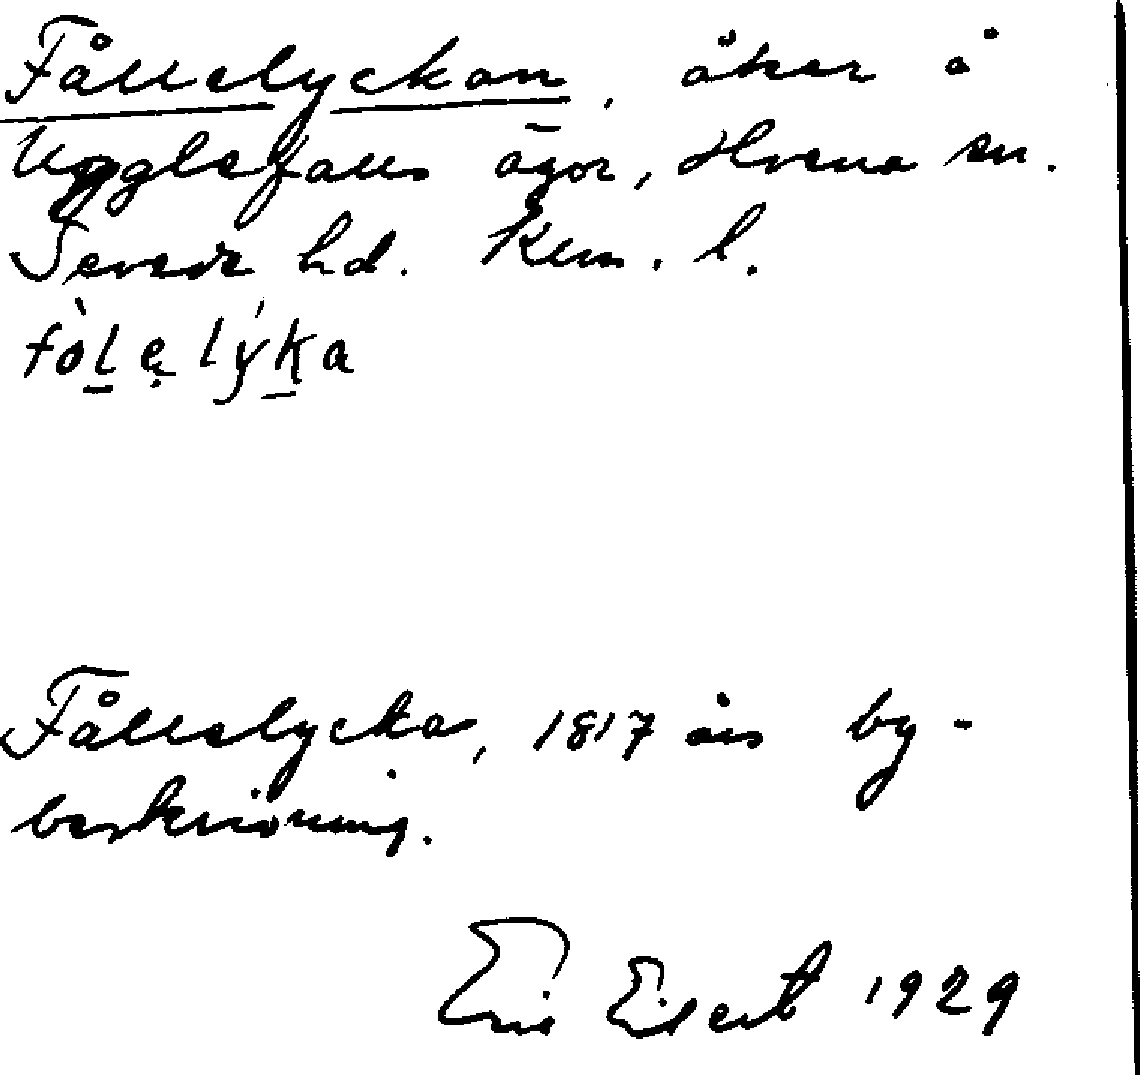 Fållelyckan, åker å
Ugglefalls ägor, Hvena sn.
Sevede hd. KLm. l.
fòḻẹlýḵa
Fållelyckan, 1817 års by-
beskrivning.
Eric Elgert 1929